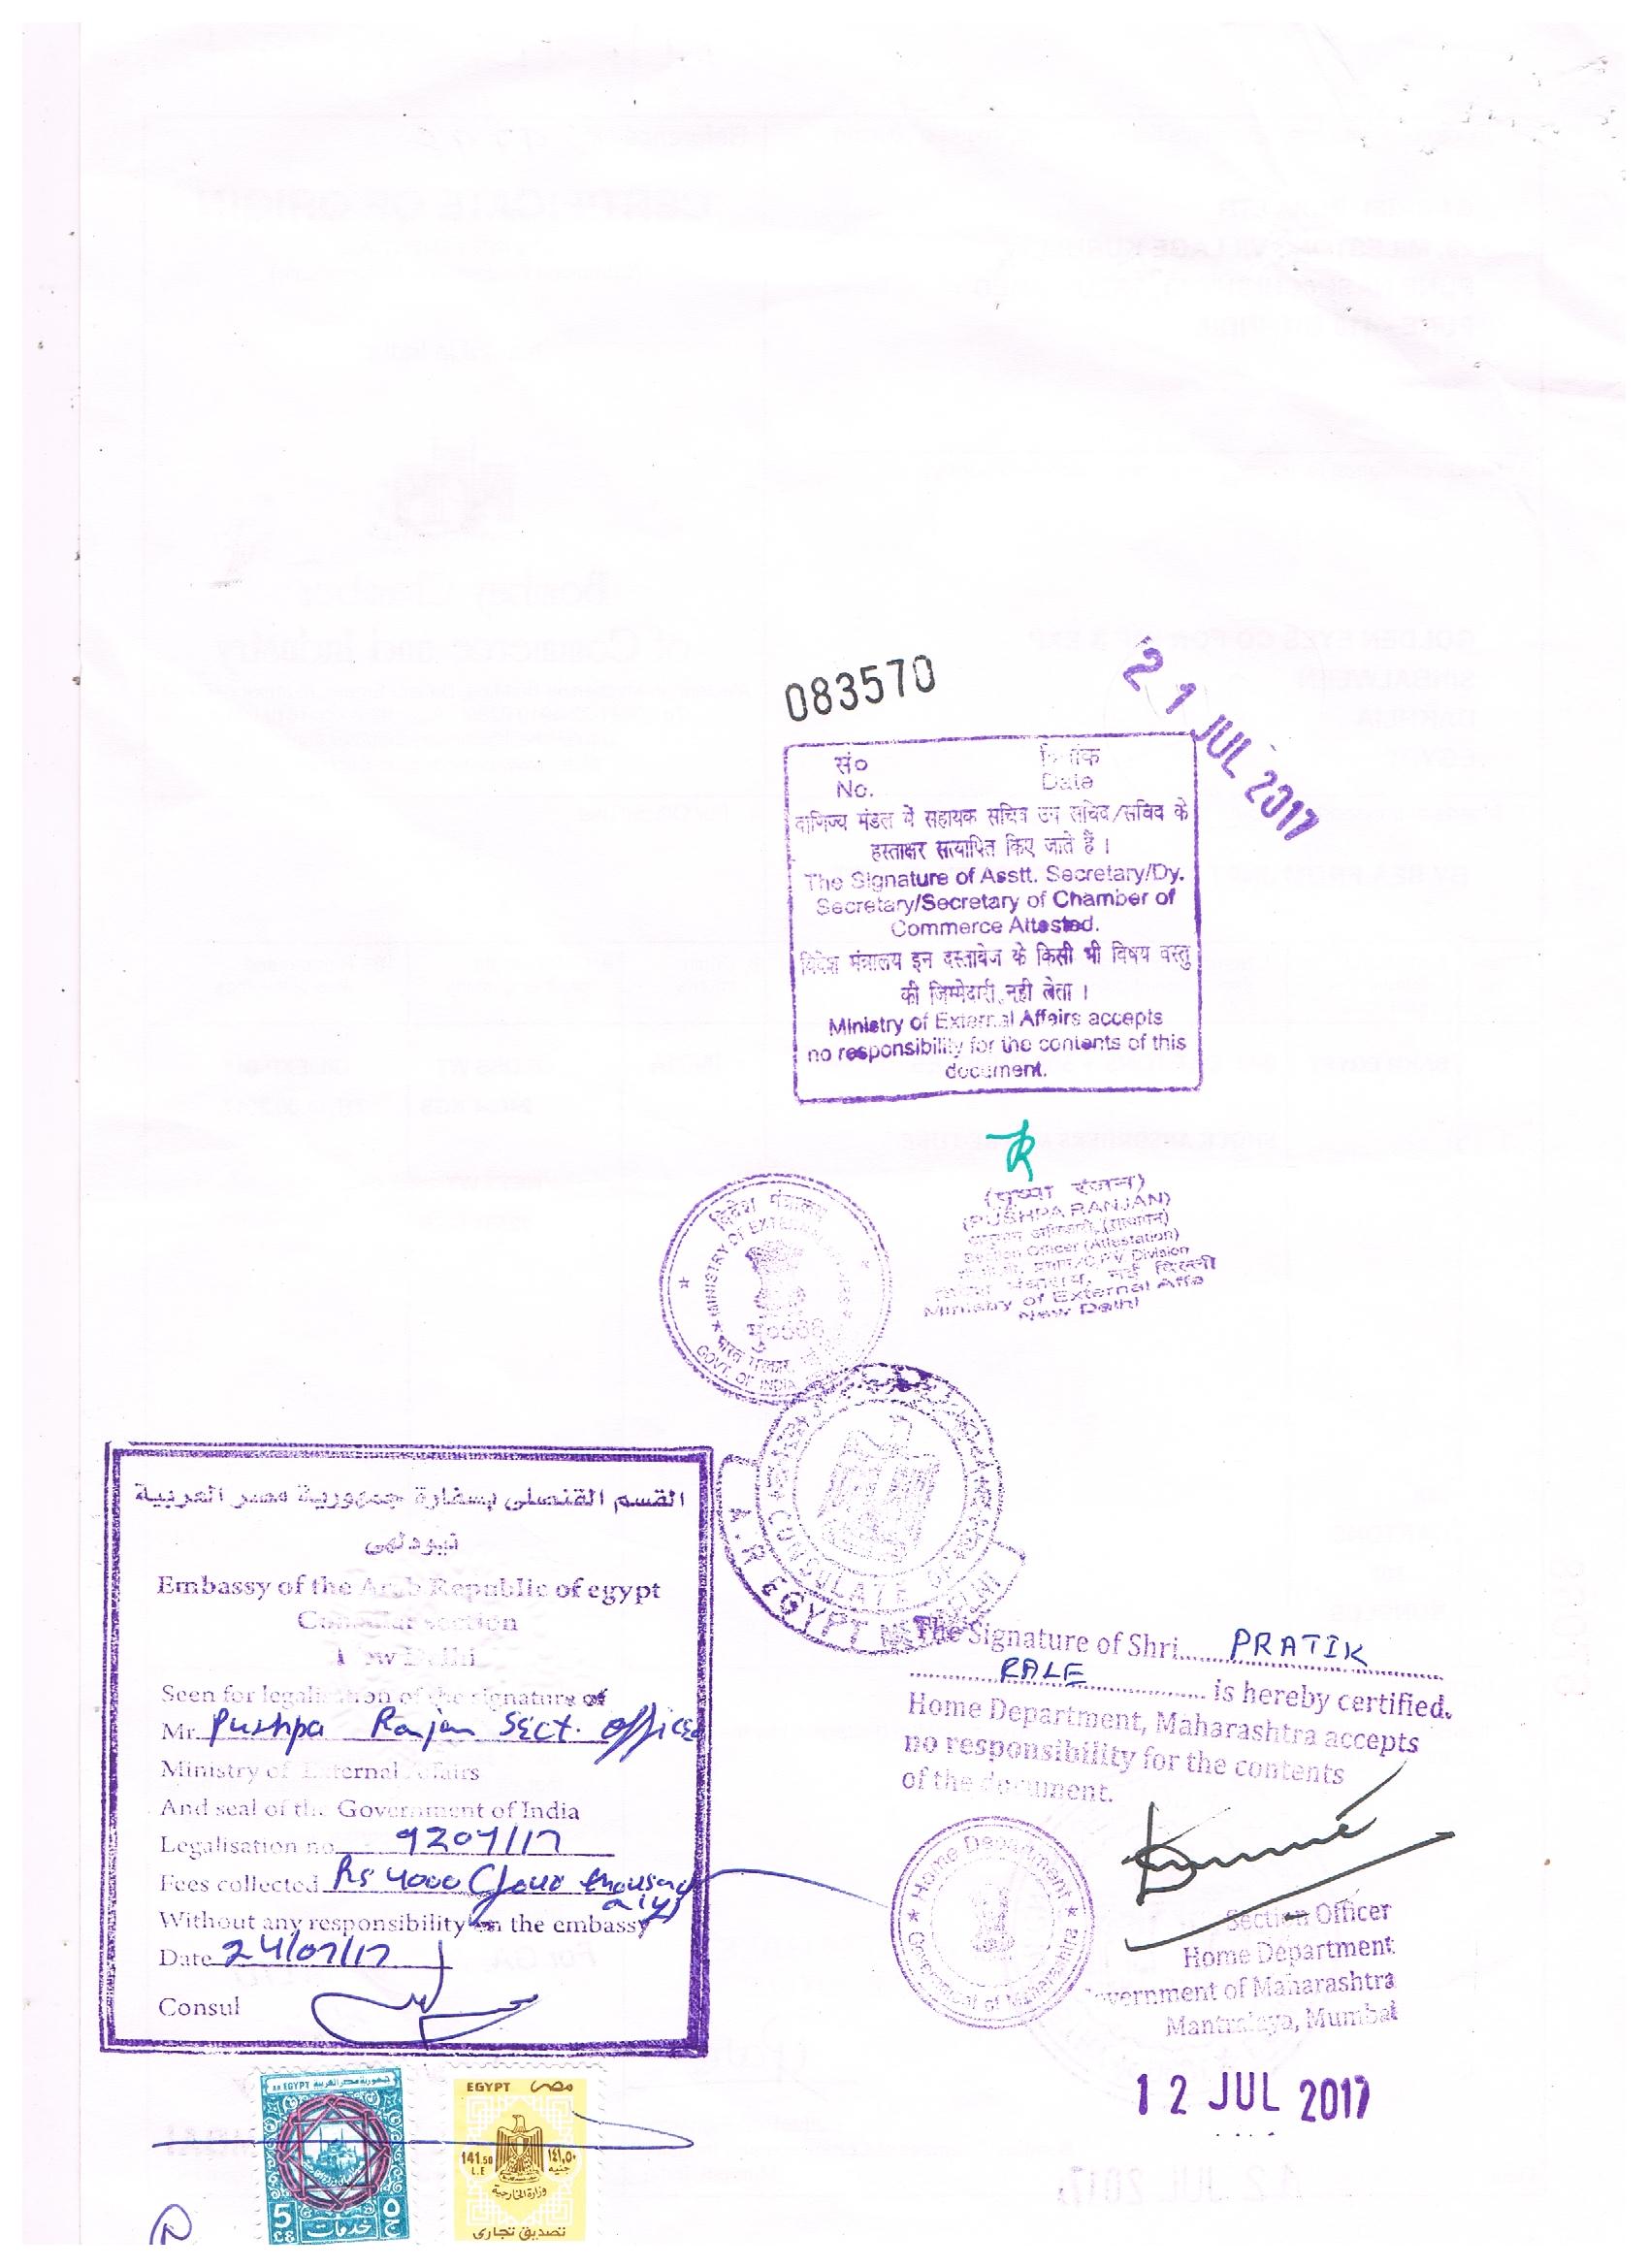 083570
21 JUL 2017
सं० दिनांक
No. Date
वाणिज्य मंडल में सहायक सचिव उप सचिव/सचिव के
हस्ताक्षर सत्यापित किए जाते हैं ।
The Signature of Asstt. Secretary/Dy.
Secretary/Secretary of Chamber of
Commerce Attested.
विदेश मंत्रालय इन दस्तावेज के किसी भी विषय वस्तु
की जिम्मेदारी नही लेता ।
Ministry of External Affairs accepts
no responsibility for the contents of this
document.
(पुष्पा रंजन)
(PUSHPA RANJAN)
Section Officer (Attestation)
C.P.V. Division
नई दिल्ली
Ministry of External Affa
New Delhi
विदेश मंत्रालय
MINISTRY OF EXTERNAL
GOVT. OF INDIA
CONSULATE
A.R. EGYPT
القسم القنصلى بسفارة جمهورية مصر العربية
نيودلهى
Embassy of the Arab Republic of egypt
Consular section
New Delhi
Seen for legalisation of the signature of
Mr. Pushpa Ranjan Sect. officer
Ministry of External Affairs
And seal of the Government of India
Legalisation no. 9207/17
Fees collected Rs 4000 (four thousand
only)
Without any responsibility on the embassy
Date 24/07/17
Consul
The Signature of Shri PRATIK
RALE is hereby certified.
Home Department, Maharashtra accepts
no responsibility for the contents
of the document.
Home Department
Government of Maharashtra
Section Officer
Home Department
Government of Maharashtra
Mantralaya, Mumbai
12 JUL 2017
EGYPT جمهورية مصر العربية
5 ٥
£E ج
خدمات
EGYPT مصر
141.50 ١٤١,٥٠
L.E جنيه
وزارة الخارجية
تصديق تجارى